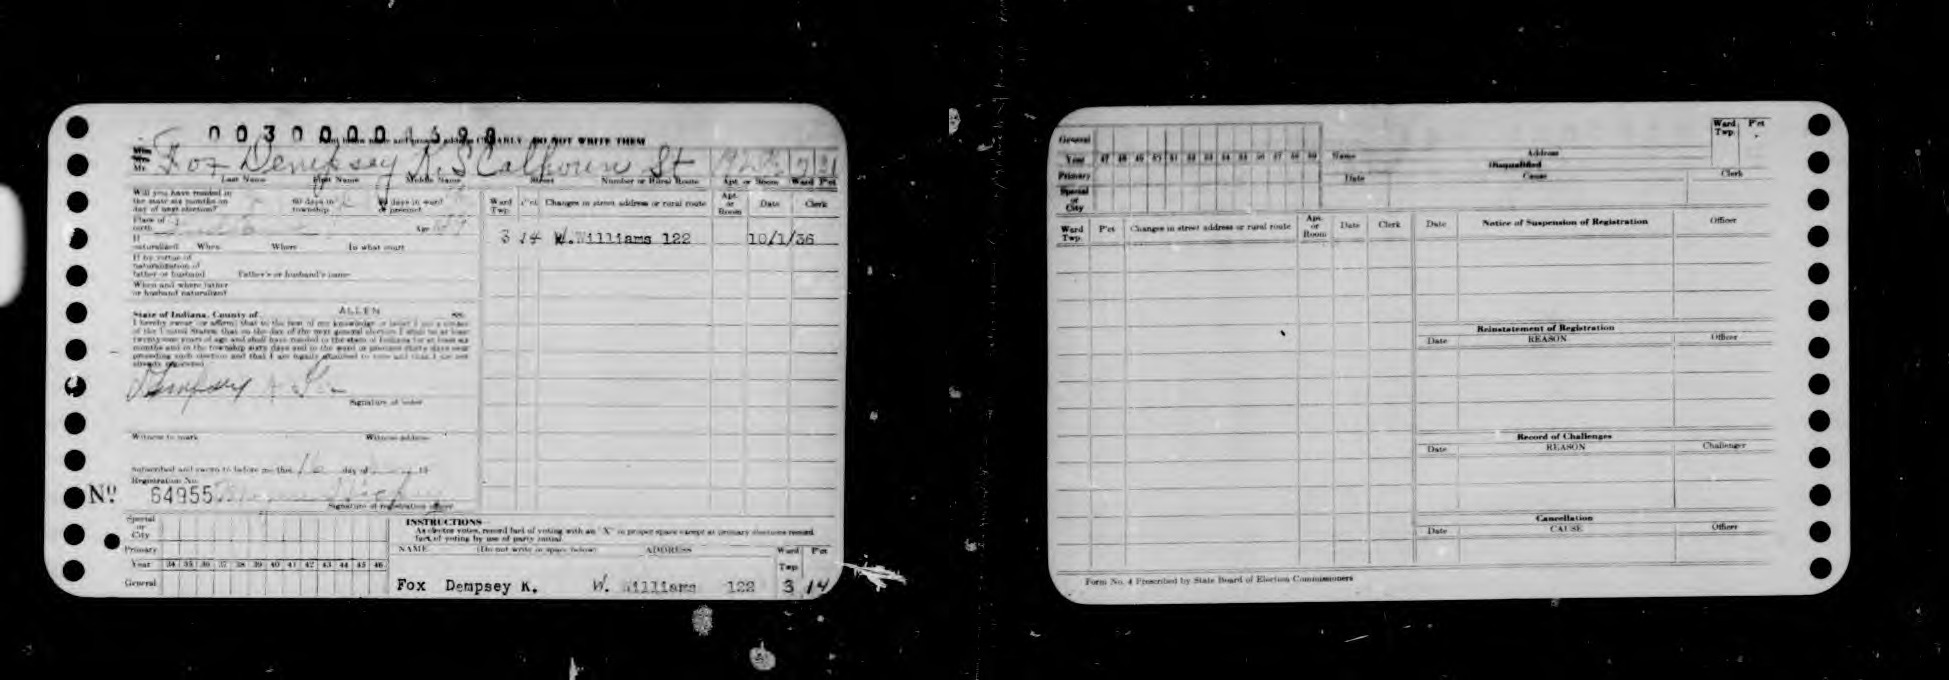 0030000
DO NOT WRITE THEM
Miss
Mrs.
Mr.
Fox Dempsey K. S Calhoun St
Last Name First Name Middle Name Street Number or Rural Route Apt. or Room Ward P'ct
Will you have resided in
the state six months on
day of next election?
60 days in
township
days in ward
or precinct
Place of
birth
Age
If
naturalized When Where In what court
If by virtue of
naturalization of
father or husband Father's or husband's name
When and where father
or husband naturalized
State of Indiana, County of ALLEN ss:
I hereby swear or affirm that to the best of my knowledge or belief I am a citizen
of the United States; that on the day of the next general election I shall be at least
twenty-one years of age and shall have resided in the state of Indiana for at least six
months and in the township sixty days and in the ward or precinct thirty days next
preceding such election and that I am legally entitled to vote and that I am not
already registered.
Dempsey K Fox
Signature of voter
Witness to mark Witness address
Subscribed and sworn to before me this day of 19
Registration No.
No. 64955
Signature of registration officer
Ward Twp. P'ct Changes in street address or rural route Apt. or Room Date Clerk
3 14 W.Williams 122 10/1/36
Special
or
City
Primary
Year 34 35 36 37 38 39 40 41 42 43 44 45 46
General
INSTRUCTIONS—
As elector votes, record fact of voting with an "X" in proper space except at primary elections record
fact of voting by use of party initial.
NAME (Do not write in space below) ADDRESS Ward Twp. P'ct
Fox Dempsey K. W. Williams 122 3 14
General
Year 47 48 49 50 51 52 53 54 55 56 57 58 59
Primary
Special
or
City
Name Address
Disqualified
Date Cause Clerk
Ward Twp. P'ct
Ward Twp. P'ct Changes in street address or rural route Apt. or Room Date Clerk
Date Notice of Suspension of Registration Officer
Reinstatement of Registration
Date REASON Officer
Record of Challenges
Date REASON Challenger
Cancellation
Date CAUSE Officer
Form No. 4 Prescribed by State Board of Election Commissioners